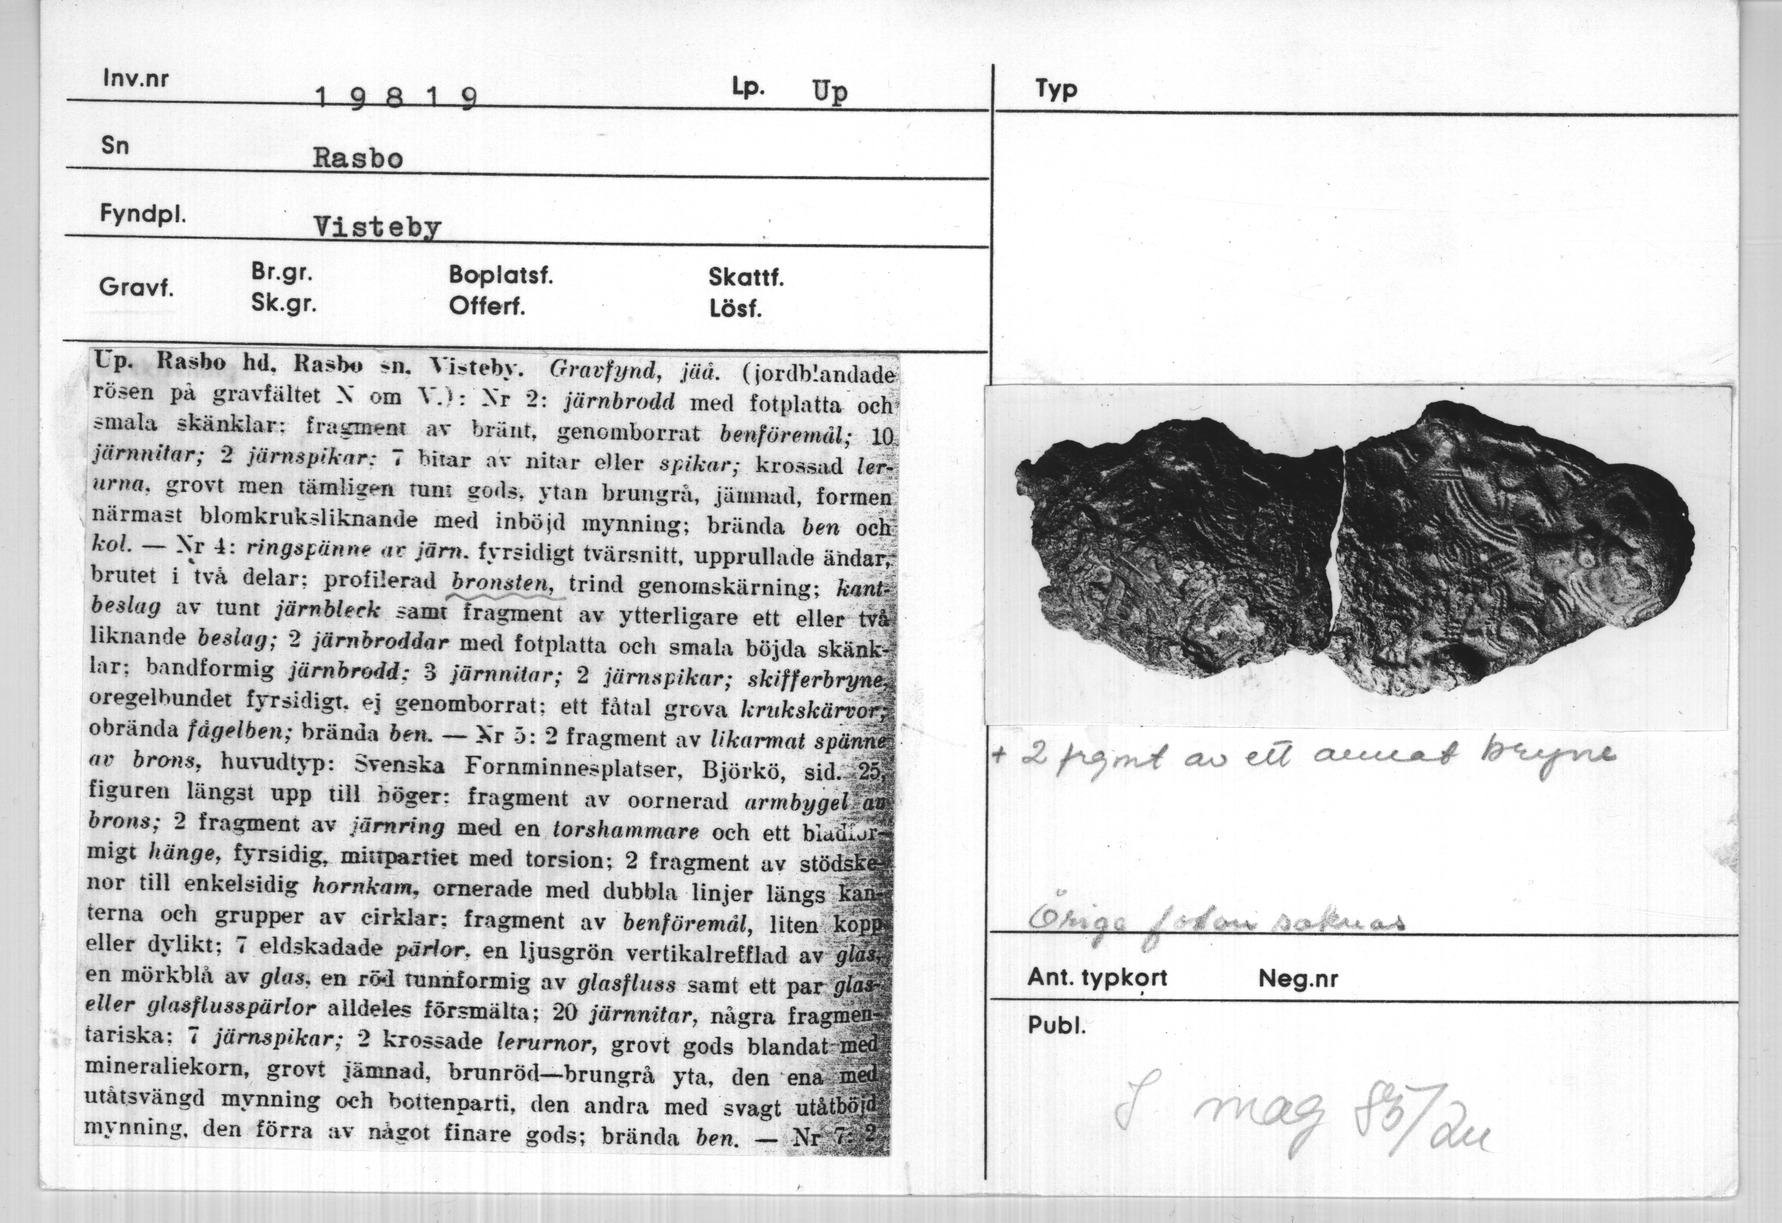 Inv.nr 19819 Lp. Up
Sn Rasbo
Fyndpl. Visteby
Gravf. Br.gr. Boplatsf. Skattf.
Sk.gr. Offerf. Lösf.
Up. Rasbo hd, Rasbo sn. Visteby. Gravfynd, jåå. (jordblandade
rösen på gravfältet N om V.): Nr 2: järnbrodd med fotplatta och
smala skänklar; fragment av bränt, genomborrat benföremål; 10
järnnitar; 2 järnspikar; 7 bitar av nitar eller spikar; krossad ler-
urna, grovt men tämligen tunt gods, ytan brungrå, jämnad, formen
närmast blomkruksliknande med inböjd mynning; brända ben och
kol. — Nr 4: ringspänne av järn, fyrsidigt tvärsnitt, upprullade ändar,
brutet i två delar; profilerad bronsten, trind genomskärning; kant-
beslag av tunt järnbleck samt fragment av ytterligare ett eller två
liknande beslag; 2 järnbroddar med fotplatta och smala böjda skänk-
lar; bandformig järnbrodd; 3 järnnitar; 2 järnspikar; skifferbryne,
oregelbundet fyrsidigt, ej genomborrat; ett fåtal grova krukskärvor;
obrända fågelben; brända ben. — Nr 5: 2 fragment av likarmat spänne
av brons, huvudtyp: Svenska Fornminnesplatser, Björkö, sid. 25,
figuren längst upp till höger; fragment av oornerad armbygel av
brons; 2 fragment av järnring med en torshammare och ett bladfor-
migt hänge, fyrsidig, mittpartiet med torsion; 2 fragment av stödske-
nor till enkelsidig hornkam, ornerade med dubbla linjer längs kan-
terna och grupper av cirklar; fragment av benföremål, liten kopp
eller dylikt; 7 eldskadade pärlor, en ljusgrön vertikalrefflad av glas,
en mörkblå av glas, en röd tunnformig av glasfluss samt ett par glas-
eller glasflusspärlor alldeles försmälta; 20 järnnitar, några fragmen-
tariska; 7 järnspikar; 2 krossade lerurnor, grovt gods blandat med
mineraliekorn, grovt jämnad, brunröd—brungrå yta, den ena med
utåtsvängd mynning och bottenparti, den andra med svagt utåtböjd
mynning, den förra av något finare gods; brända ben. — Nr 7: 2
Typ
+ 2 frgmt av ett annat bryne
Övriga foton saknas
Ant. typkort Neg.nr
Publ.
mag